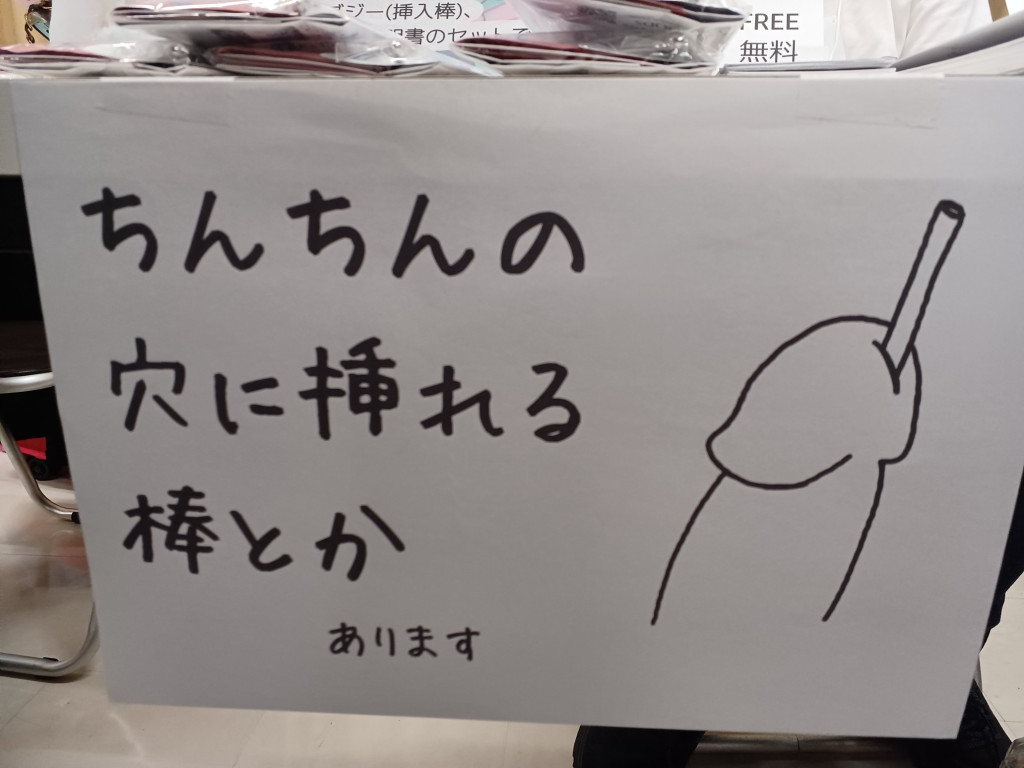 ブジー(挿入棒)、
書のセットで
FREE
無料
ちんちんの
穴に挿れる
棒とか
あります